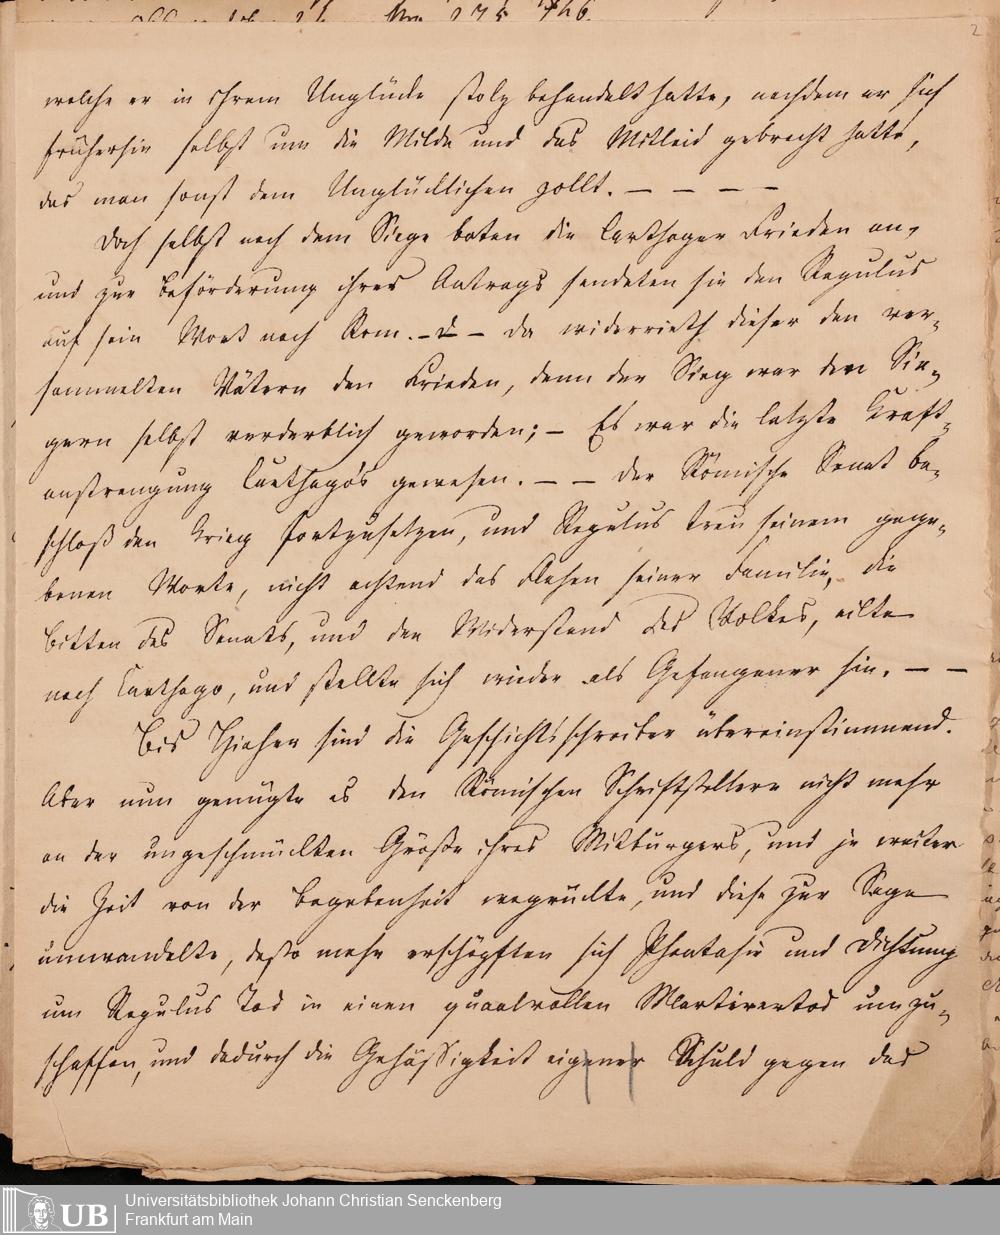 2
welche er in ihrem Unglücke stolz behandelt hatte, nachdem er sich
früherhin selbst um die Milde und das Mitleid gebracht hatte,
das man sonst dem Unglücklichen zollt. — — — —
Doch selbst nach dem Siege boten die Carthager Frieden an,
und zur Beförderung ihres Antrags sendeten sie den Regulus
auf sein Wort nach Rom. — — Da widerrieth dieser den ver-
sammelten Vätern den Frieden, denn der Sieg war den Sie-
gern selbst verderblich geworden; — Es war die letzte Kraft-
anstrengung Carthago's gewesen. — — Der Römische Senat be-
schloß den Krieg fortzusetzen, und Regulus treu seinem gege-
benen Worte, nicht achtend das Flehen seiner Familie, die
Bitten des Senats, und den Widerstand des Volkes, eilte
nach Carthago, und stellte sich wieder als Gefangener hin. — —
Bis hieher sind die Geschichtsschreiber übereinstimmend.
Aber nun genügte es den Römischen Schriftstellern nicht mehr
an der ungeschmückten Größe ihres Mitbürgers, und je weiter
die Zeit von der Begebenheit wegrückte, und diese zur Sage
umwandelte, desto mehr erschöpften sich Phantasie und Dichtung
um Regulus Tod in einen quaalvollen Martirertod umzu-
schaffen, und dadurch die Gehässigkeit eigener Schuld gegen das
UB
Universitätsbibliothek Johann Christian Senckenberg
Frankfurt am Main